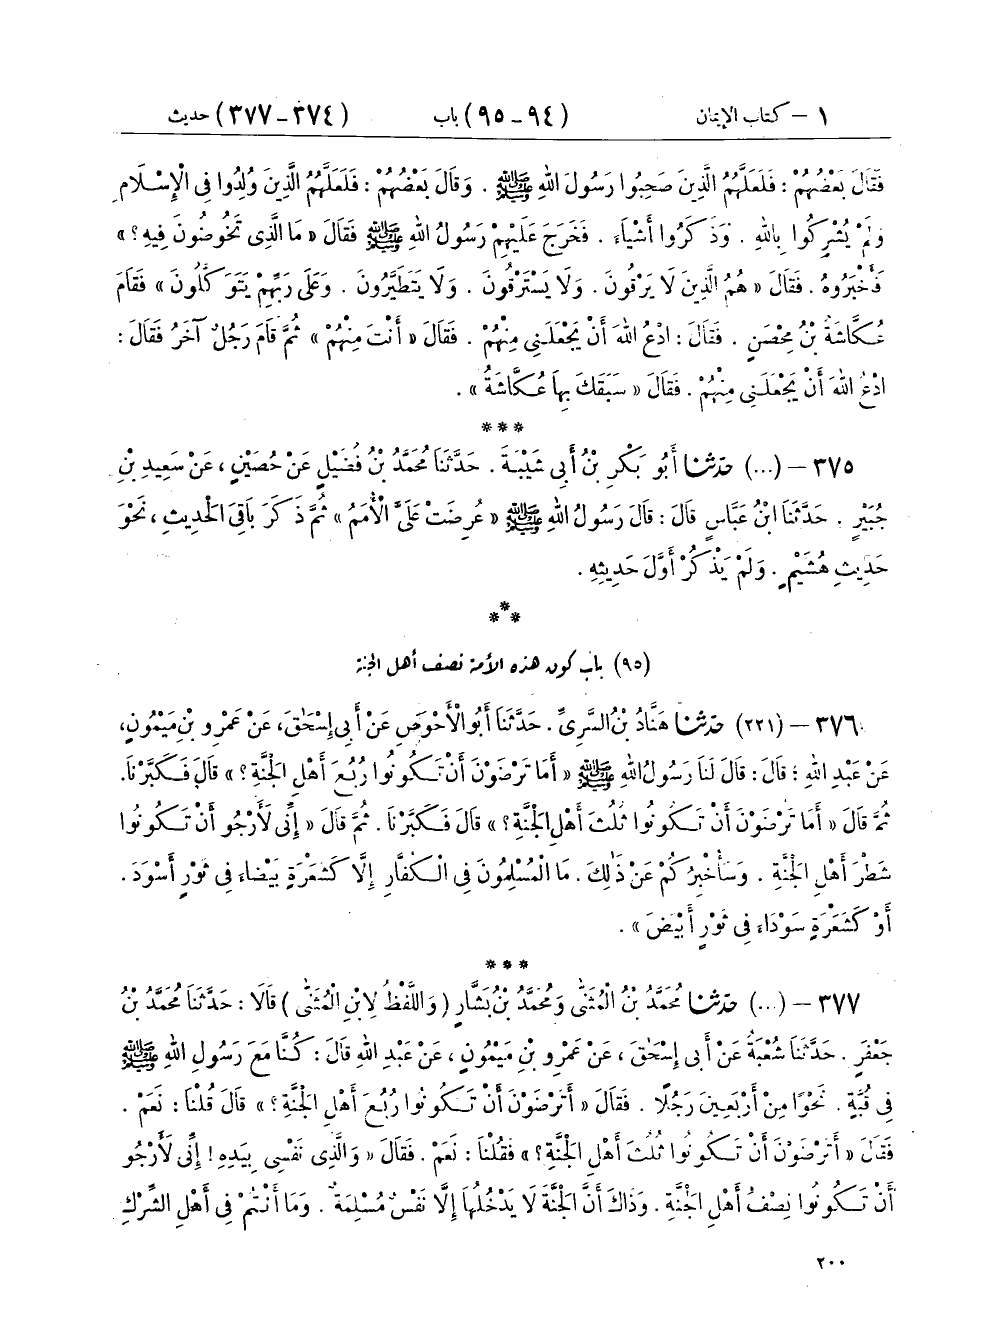 ١ – كتاب الإيمان (٩٤ – ٩٥) باب (٣٧٤ – ٣٧٧) حديث
فَقَالَ بَعْضُهُمْ : فَلَعَلَّهُمُ الَّذِينَ صَحِبُوا رَسُولَ اللهِ ﷺ . وَقَالَ بَعْضُهُمْ : فَلَعَلَّهُمُ الَّذِينَ وُلِدُوا فِى الْإِسْلَامِ
وَلَمْ يُشْرِكُوا بِاللهِ . وَذَكَرُوا أَشْيَاءَ . فَخَرَجَ عَلَيْهِمْ رَسُولُ اللهِ ﷺ فَقَالَ « مَا الَّذِى تَخُوضُونَ فِيهِ ؟ »
فَأَخْبَرُوهُ . فَقَالَ « هُمُ الَّذِينَ لَا يَرْقُونَ . وَلَا يَسْتَرْقُونَ . وَلَا يَتَطَيَّرُونَ . وَعَلَى رَبِّهِمْ يَتَوَكَّلُونَ » فَقَامَ
عُكَّاشَةُ بْنُ مِحْصَنٍ . فَقَالَ : ادْعُ اللهَ أَنْ يَجْعَلَنِى مِنْهُمْ . فَقَالَ « أَنْتَ مِنْهُمْ » ثُمَّ قَامَ رَجُلٌ آخَرُ فَقَالَ :
ادْعُ اللهَ أَنْ يَجْعَلَنِى مِنْهُمْ . فَقَالَ « سَبَقَكَ بِهَا عُكَّاشَةُ » .
***
٣٧٥ – (...) حَدَّثَنَا أَبُو بَكْرِ بْنُ أَبِى شَيْبَةَ . حَدَّثَنَا مُحَمَّدُ بْنُ فُضَيْلٍ عَنْ حُصَيْنٍ ، عَنْ سَعِيدِ بْنِ
جُبَيْرٍ . حَدَّثَنَا ابْنُ عَبَّاسٍ قَالَ : قَالَ رَسُولُ اللهِ ﷺ « عُرِضَتْ عَلَىَّ الْأُمَمُ » ثُمَّ ذَكَرَ بَاقِىَ الْحَدِيثِ ، نَحْوَ
حَدِيثِ هُشَيْمٍ . وَلَمْ يَذْكُرْ أَوَّلَ حَدِيثِهِ .
***
(٩٥) باب كون هذه الأمة نصف أهل الجنة
٣٧٦ – (٢٢١) حَدَّثَنَا هَنَّادُ بْنُ السَّرِىِّ . حَدَّثَنَا أَبُو الْأَحْوَصِ عَنْ أَبِى إِسْحَاقَ ، عَنْ عَمْرِو بْنِ مَيْمُونٍ ،
عَنْ عَبْدِ اللهِ ؛ قَالَ : قَالَ لَنَا رَسُولُ اللهِ ﷺ « أَمَا تَرْضَوْنَ أَنْ تَكُونُوا رُبُعَ أَهْلِ الْجَنَّةِ ؟ » قَالَ فَكَبَّرْنَا .
ثُمَّ قَالَ « أَمَا تَرْضَوْنَ أَنْ تَكُونُوا ثُلُثَ أَهْلِ الْجَنَّةِ ؟ » قَالَ فَكَبَّرْنَا . ثُمَّ قَالَ « إِنِّى لَأَرْجُو أَنْ تَكُونُوا
شَطْرَ أَهْلِ الْجَنَّةِ . وَسَأُخْبِرُكُمْ عَنْ ذَلِكَ . مَا الْمُسْلِمُونَ فِى الْكُفَّارِ إِلَّا كَشَعْرَةٍ بَيْضَاءَ فِى ثَوْرٍ أَسْوَدَ .
أَوْ كَشَعْرَةٍ سَوْدَاءَ فِى ثَوْرٍ أَبْيَضَ » .
***
٣٧٧ – (...) حَدَّثَنَا مُحَمَّدُ بْنُ الْمُثَنَّى وَمُحَمَّدُ بْنُ بَشَّارٍ ( وَاللَّفْظُ لِابْنِ الْمُثَنَّى ) قَالَا : حَدَّثَنَا مُحَمَّدُ بْنُ
جَعْفَرٍ . حَدَّثَنَا شُعْبَةُ عَنْ أَبِى إِسْحَاقَ ، عَنْ عَمْرِو بْنِ مَيْمُونٍ ، عَنْ عَبْدِ اللهِ قَالَ : كُنَّا مَعَ رَسُولِ اللهِ ﷺ
فِى قُبَّةٍ . نَحْوًا مِنْ أَرْبَعِينَ رَجُلًا . فَقَالَ « أَتَرْضَوْنَ أَنْ تَكُونُوا رُبُعَ أَهْلِ الْجَنَّةِ ؟ » قَالَ قُلْنَا : نَعَمْ .
فَقَالَ « أَتَرْضَوْنَ أَنْ تَكُونُوا ثُلُثَ أَهْلِ الْجَنَّةِ ؟ » فَقُلْنَا : نَعَمْ . فَقَالَ « وَالَّذِى نَفْسِى بِيَدِهِ ! إِنِّى لَأَرْجُو
أَنْ تَكُونُوا نِصْفَ أَهْلِ الْجَنَّةِ . وَذَاكَ أَنَّ الْجَنَّةَ لَا يَدْخُلُهَا إِلَّا نَفْسٌ مُسْلِمَةٌ . وَمَا أَنْتُمْ فِى أَهْلِ الشِّرْكِ
٢٠٠